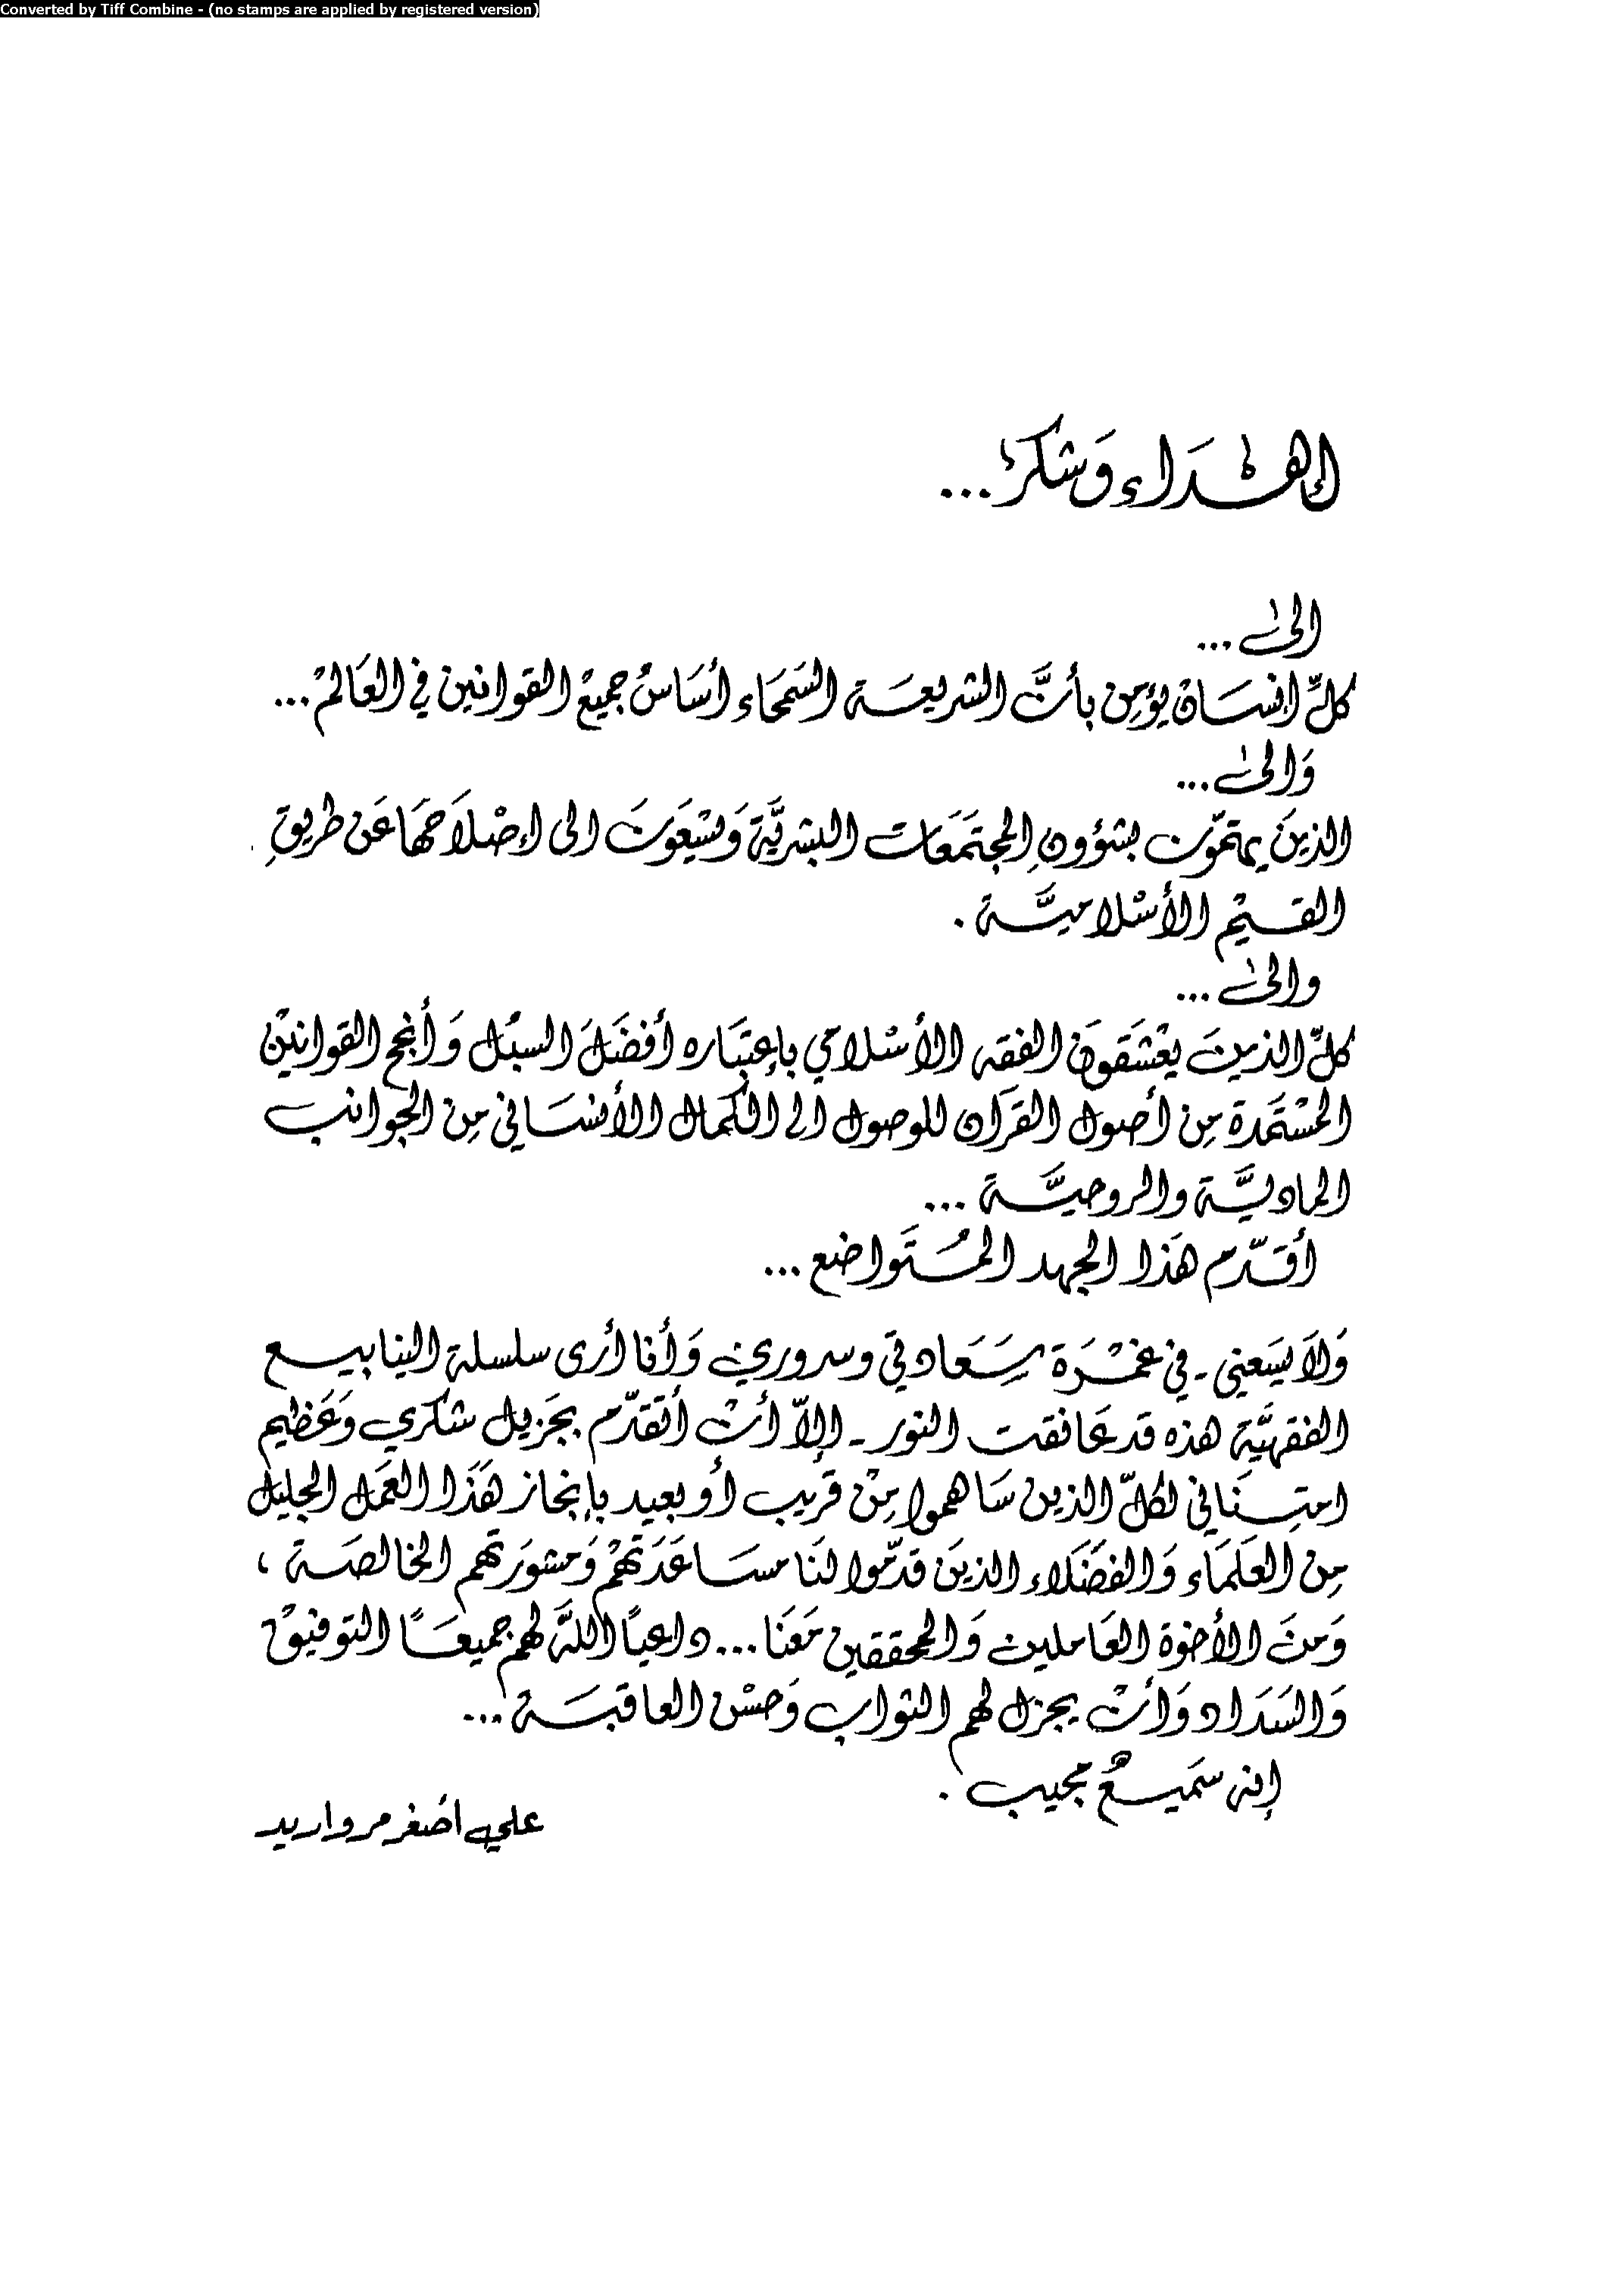 Converted by Tiff Combine - (no stamps are applied by registered version)
إهْداء وَشكر...
الىٰ...
كلِّ إنسَان يؤمِن بأنَّ الشريعَة السَمحَاء أسَاسُ جميعْ القوانين في العَالمْ...
وَالىٰ...
الذينَ يهتمّون بشؤونِ المجتمَعَات البشريَّة وَيسْعَونَ الى إصْلاَحهَا عَن طريقِ
القيمْ الأسْلاميَّة .
والىٰ...
كلِّ الذينَ يعْشَقونَ الفقه الأسْلامي بإعتبَاره أفضَلَ السبُل وَأنجح القوانينْ
المسْتَمدة مِن أصول القرآن للوصول الى الكمال الأنسَاني مِن الجوانب
الماديَّة والروحيَّة ...
أقدّم هَذا الجهد المُتَواضع ...
وَلاَ يسَعني - في غمْرَة سَعَادتي وسروري وَأنا أرى سلسلة الينابيع
الفقهيَّة هذه قد عَانقت النور - إلاّ أنْ أتقدّم بجَزيل شكري وَعَظيم
امتِنَاني لكلّ الذين سَاهموا مِنْ قريب أو بعيد بإنجاز هَذَا العَمل الجليل
مِن العلَمَاء وَالفضَلاء الذينَ قدّموا لنَا مسَاعَدَتهمْ وَمشورَتهم الخالصَة ،
وَمنَ الأخوة العَاملين وَالمحققين مَعَنا ... داعياً اللهَ لهم جميعَاً التوفيقْ
وَالسَدَاد وَأنْ يجزل لهم الثواب وَحسْن العاقبَة ...
إنه سَميعٌ مجيب .
علي أصْغر مرواريد